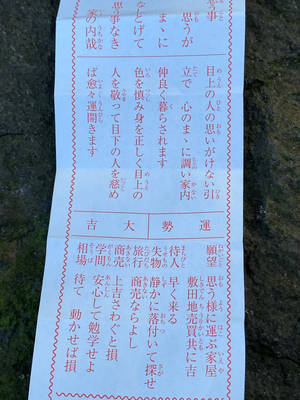 思う事
思うが
まゝに
なとげて
思う事なき
家の内哉
目上の人の思いがけない引
立で 心のまゝに調い家内
仲良く暮らされます
色を慎み身を正しく目上の
人を敬って目下の人を慈め
ば愈々運開きます
運勢 大吉
願望 思う様に運ぶ家屋
敷田地売買共に吉
待人 早く来る
失物 静かに落付いて探せ
旅行 商売ならよし
商売 上吉さわぐと損
学問 安心して勉学せよ
相場 待て 動かせば損